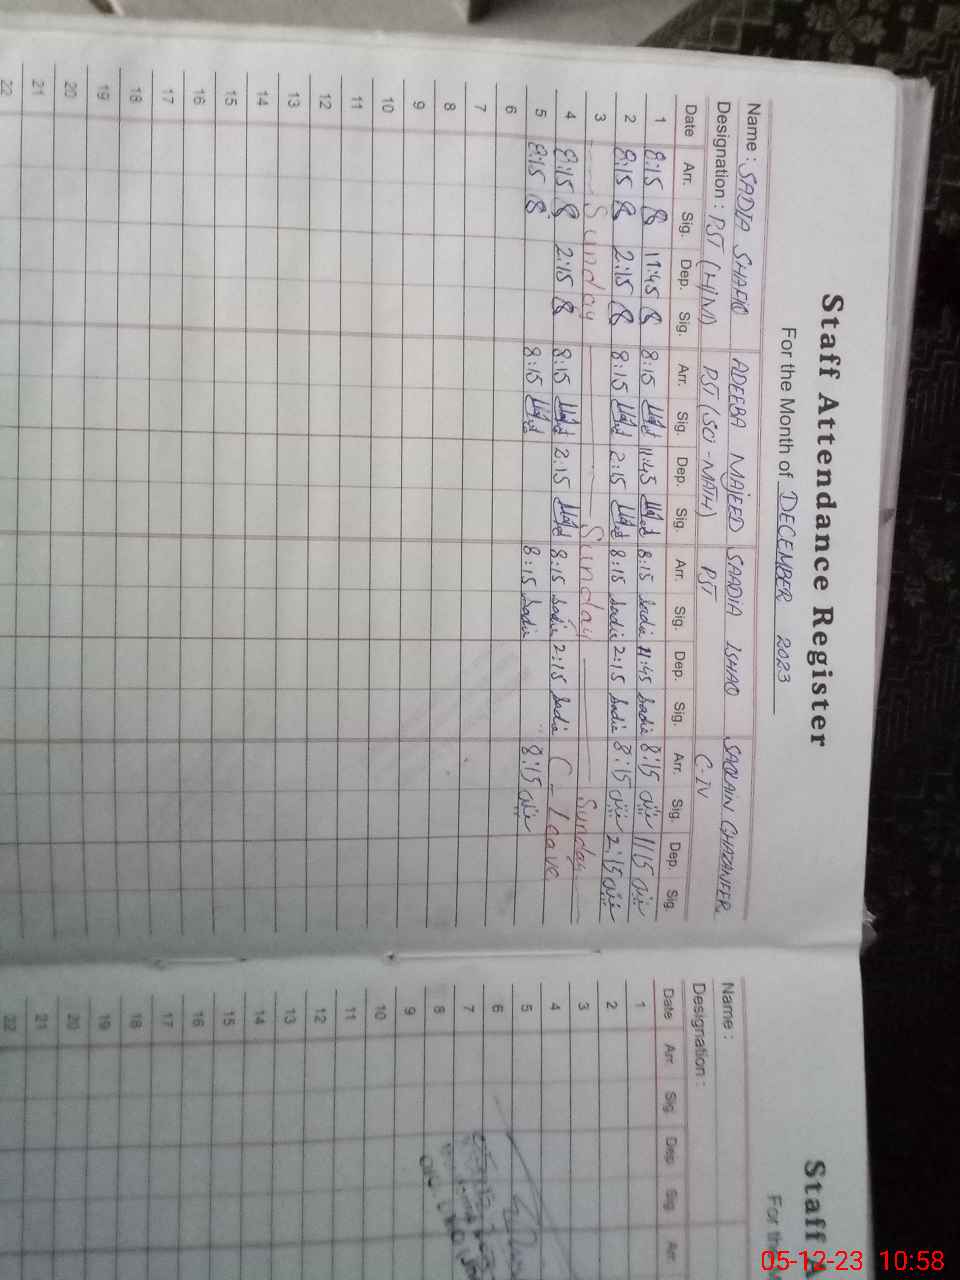 Staff Attendance Register
For the Month of DECEMBER 2023
Name : SADIA SHAFIQ ADEEBA MAJEED SAADIA ISHAQ SAQLAIN GHAZANFER
Designation : PST (H/M) PST (SCI-MATH) PST C-IV
Date Arr. Sig. Dep. Sig. Arr. Sig. Dep. Sig. Arr. Sig. Dep. Sig. Arr. Sig. Dep. Sig.
1 8:15 11:45 8:15 11:45 8:15 Sadia 11:45 Sadia 8:15 11:15
2 8:15 2:15 8:15 2:15 8:15 Sadia 2:15 Sadia 8:15 2:15
3 Sunday Sunday Sunday
4 8:15 2:15 8:15 2:15 8:15 Sadia 2:15 Sadia C-Leave
5 8:15 8:15 8:15 Sadia 8:15
6
7
8
9
10
11
12
13
14
15
16
17
18
19
20
21
22
Staff A
For th
Name :
Designation :
Date Arr. Sig. Dep. Sig. Arr.
1
2
3
4
5
6
7
8
9
10
11
12
13
14
15
16
17
18
19
20
21
22
05-12-23 10:58